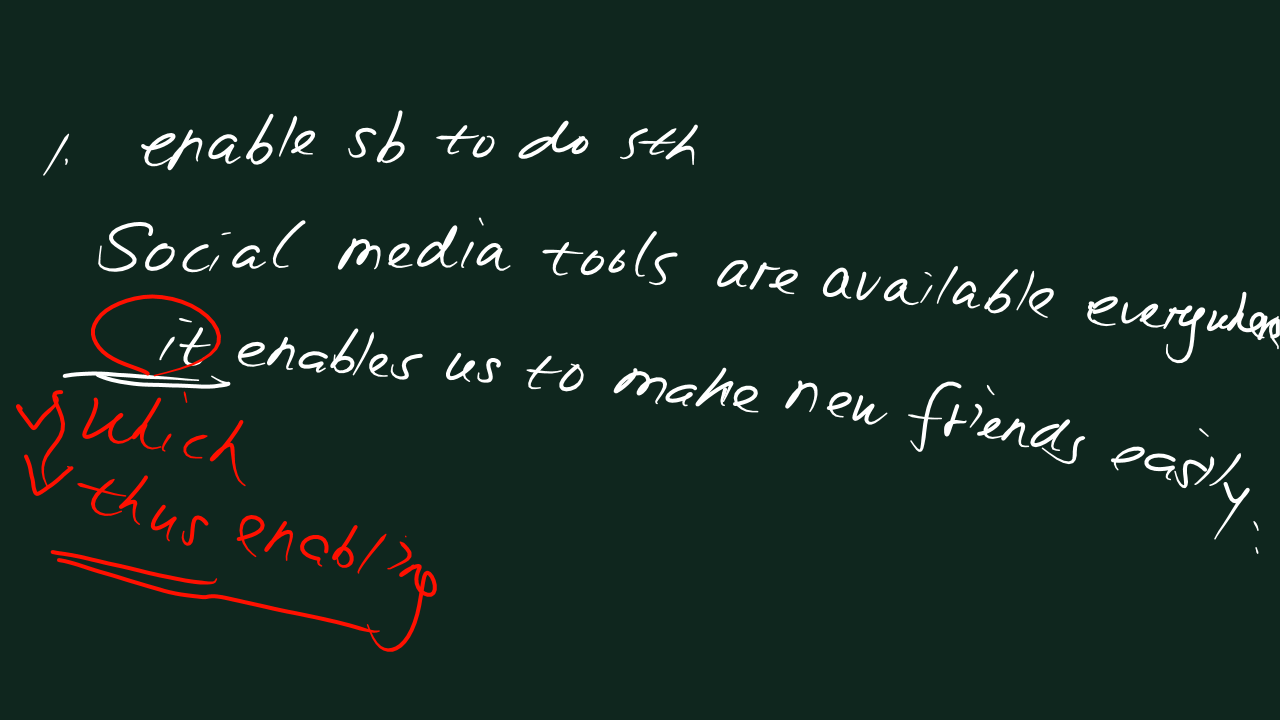 1. enable sb to do sth
Social media tools are available everywhere
it enables us to make new friends easily.
which
thus enabling